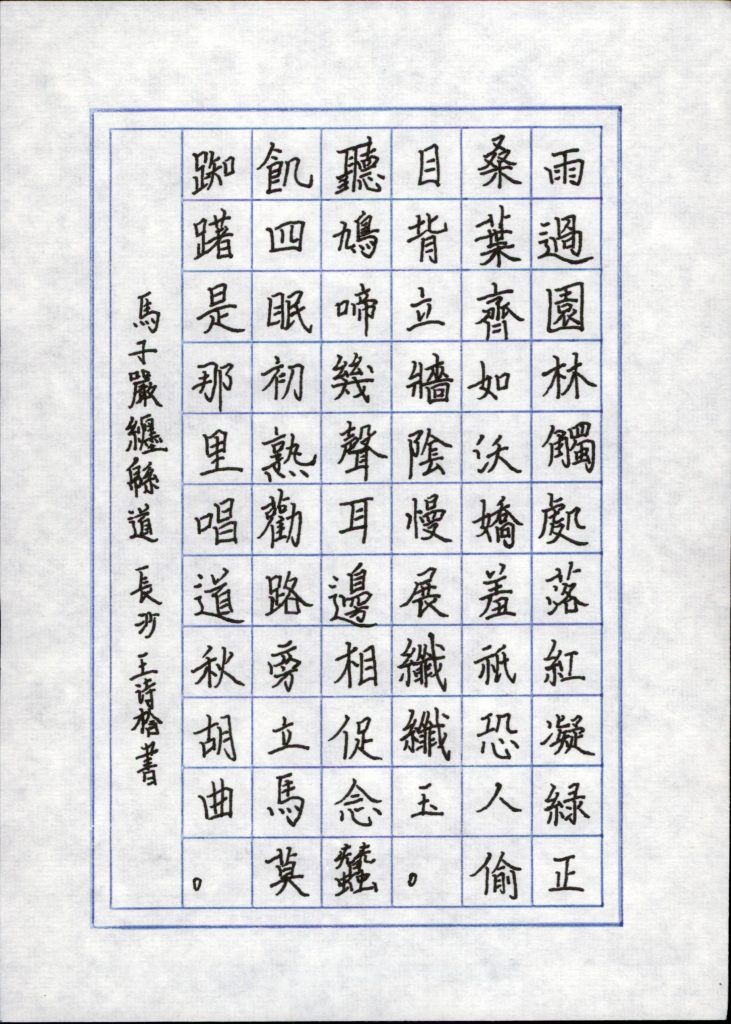 雨過園林觸處落紅凝緑正
桑葉齊如沃嬌羞祇恐人偷
目背立牆陰慢展纖纖玉。
聽鳩啼幾聲耳邊相促念蠶
飢四眠初熟勸路旁立馬莫
踟躇是那里唱道秋胡曲。
馬子嚴纏緜道 長沙 王诗 書